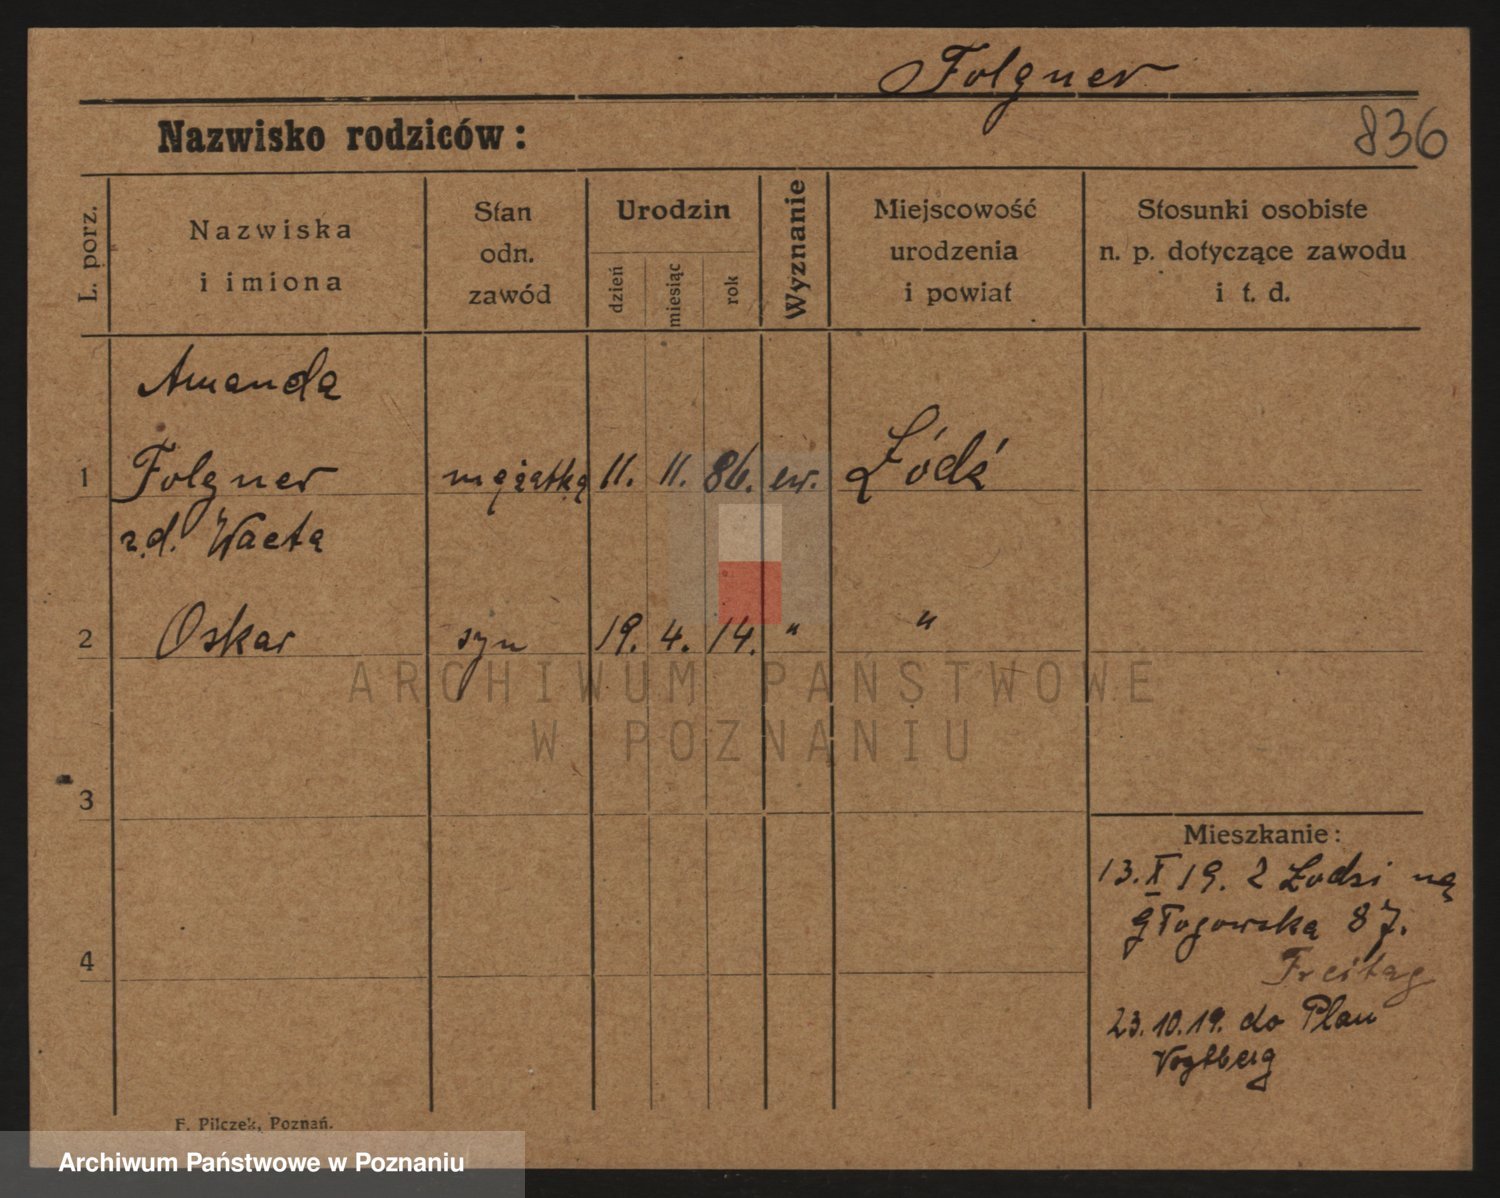 Folgner
Nazwisko rodziców:
836
L. porz.
Nazwiska
i imiona
Stan
odn.
zawód
Urodzin
dzień
miesiąc
rok
Wyznanie
Miejscowość
urodzenia
i powiat
Stosunki osobiste
n. p. dotyczące zawodu
i t. d.
Amanda
1 Folgner mężatka 11. 11. 86. ew. Łódź
z.d. Waeta
2 Oskar syn 19. 4. 14. " "
ARCHIWUM PAŃSTWOWE
W POZNANIU
3
Mieszkanie:
13. X 19. z Łodzi na
Głogowska 87.
Freitag
4
23.10.19. do Plau
Vogtberg
F. Pilczek, Poznań.
Archiwum Państwowe w Poznaniu